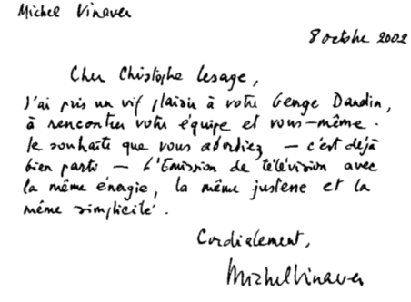 Michel Vinaver
8 octobre 2002
Cher Christophe Lesage,
J'ai pris un vif plaisir à votre George Dandin,
à rencontrer votre équipe et vous-même.
Je souhaite que vous abordiez — c'est déjà
bien parti — L'Emission de télévision avec
la même énergie, la même justesse et la
même simplicité.
Cordialement,
Michel Vinaver